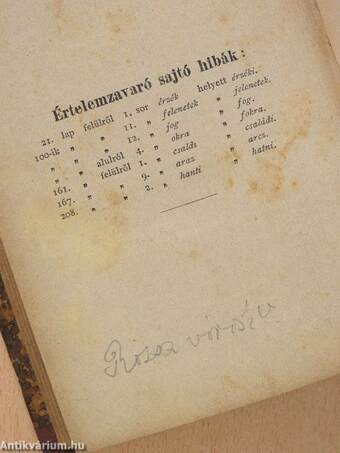 Értelemzavaró sajtó hibák:
21. lap felülről 1. sor érzék helyett érzéki.
100-ik „ „ 11. „ jelenetek „ jelenetek.
„ „ „ 12. „ fog „ fog.
„ „ alulról 4. „ okra „ fokra.
161. „ felülről 1. „ csaldi „ családi.
167. „ „ 9. „ araz „ arcz.
208. „ „ 2. „ hanti „ hatni.
Rózsa
Antikvárium.hu